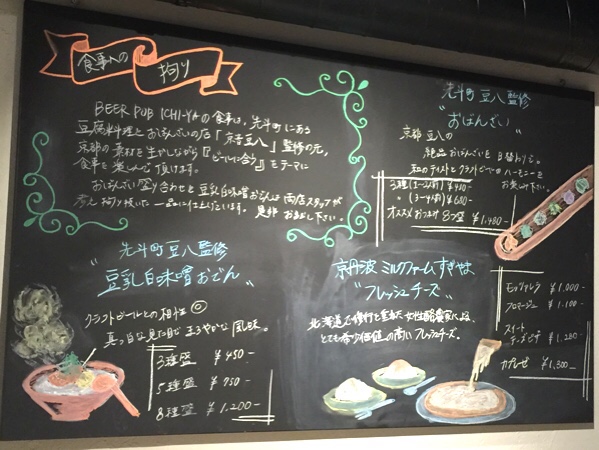 食事への
拘り
BEER PUB ICHI-YAの食事は、先斗町にある
豆腐料理とおばんざいの店「京都豆八」監修の元、
京都の素材を生かしながら『ビールに合う』をテーマに
食事を楽しんで頂けます。
おばんざい盛り合わせと豆乳白味噌おでんは両店スタッフが
考え拘り抜いた一品に仕上げています。是非お試し下さい。
先斗町 豆八 監修
"おばんざい"
京都 豆八の
絶品おばんざいを日替わりで。
和のテイストとクラフトビールのハーモニーを
お楽しみ下さい。
3種(1~2人前) ¥480-
〃(3~4人前) ¥680-
オススメおつまみ8種盛 ¥1.480-
"先斗町豆八監修
豆乳白味噌おでん"
クラフトビールとの相性◎
真っ白な見た目でまろやかな風味。
3種盛 ¥450-
5種盛 ¥750-
8種盛 ¥1.200-
京丹波 ミルクファームすぎやま
"フレッシュチーズ"
北海道で修行を重ねた女性酪農家による、
とても希少価値の高いフレッシュチーズ。
モッツァレラ ¥1.000-
フロマージュ ¥1.100-
スイート
チーズピザ ¥1.280-
カプレーゼ ¥1.300-